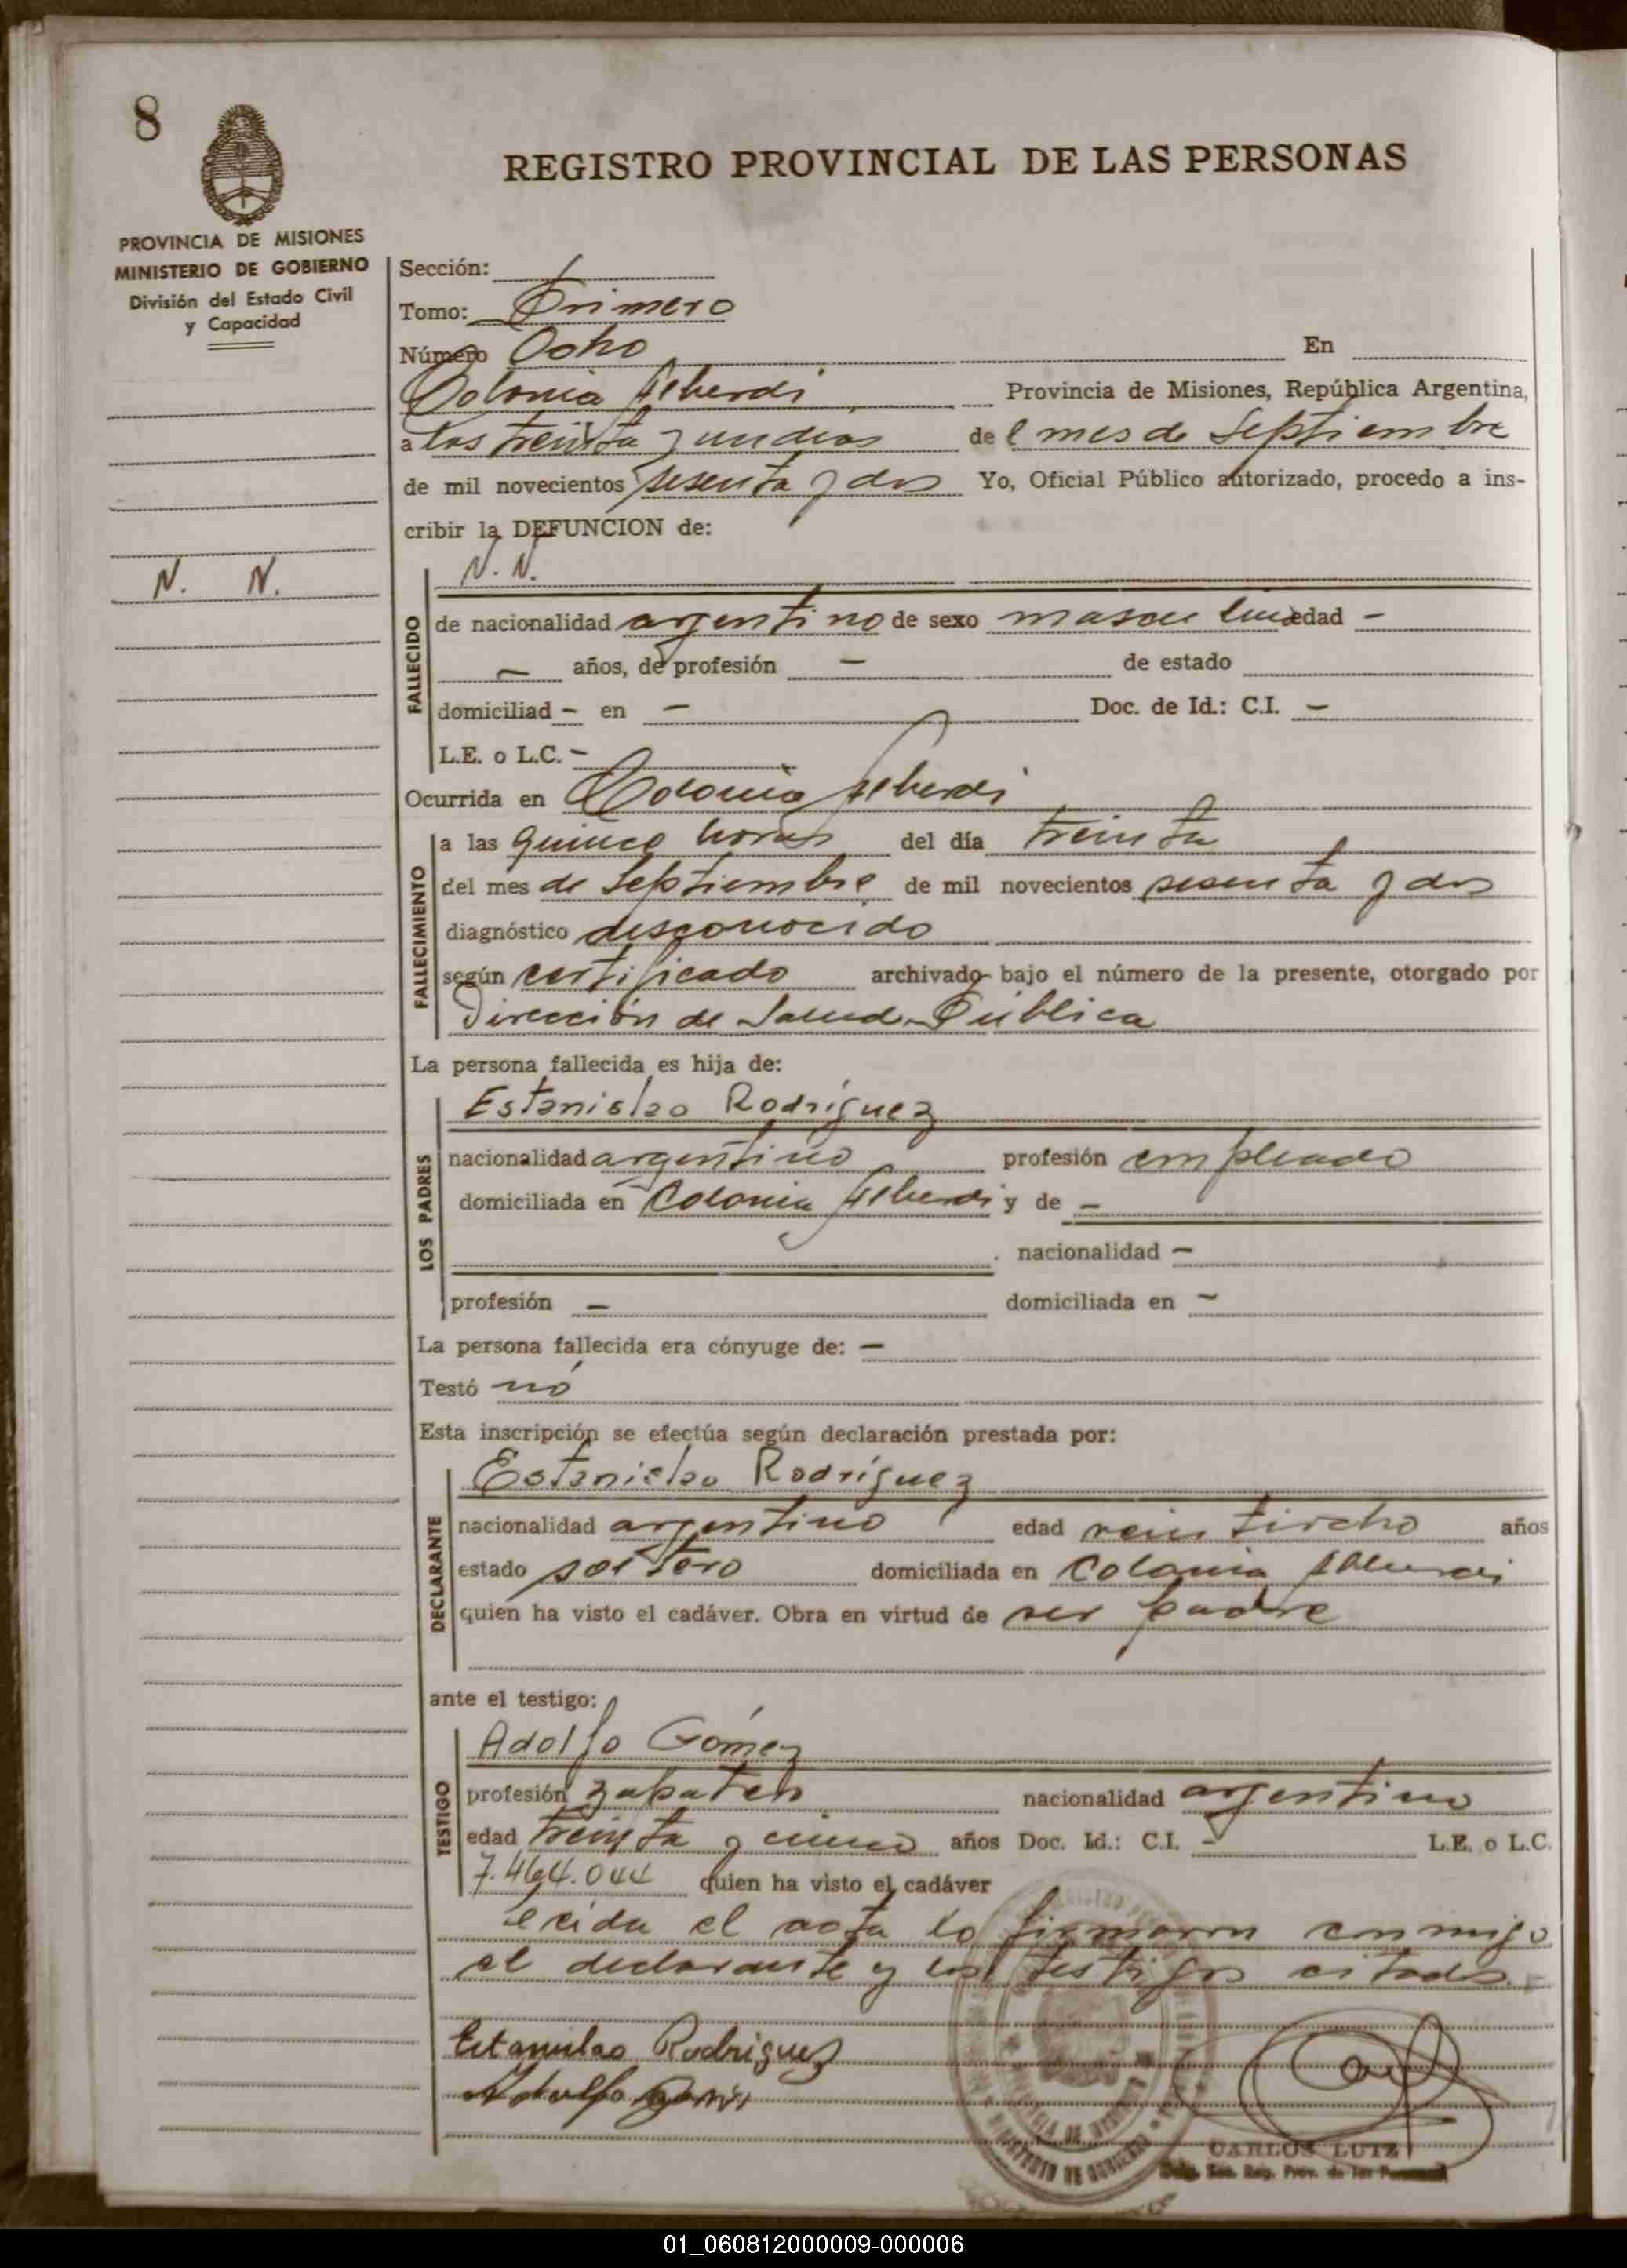 8
REGISTRO PROVINCIAL DE LAS PERSONAS
PROVINCIA DE MISIONES
MINISTERIO DE GOBIERNO
División del Estado Civil
y Capacidad
Sección:
Tomo: Primero
Número Ocho En
Colonia Alberdi Provincia de Misiones, República Argentina,
a los treinta y un dias de l mes de Septiembre
de mil novecientos sesenta y dos Yo, Oficial Público autorizado, procedo a ins-
cribir la DEFUNCION de:
N. N.
N. N.
FALLECIDO
de nacionalidad argentino de sexo masculino edad -
- años, de profesión - de estado
domiciliad - en - Doc. de Id.: C.I. -
L.E. o L.C. -
Ocurrida en Colonia Alberdi
FALLECIMIENTO
a las quince horas del día treinta
del mes de Septiembre de mil novecientos sesenta y dos
diagnóstico desconocido
según certificado archivado bajo el número de la presente, otorgado por
Dirección de Salud Pública
La persona fallecida es hija de:
LOS PADRES
Estanislao Rodríguez
nacionalidad argentino profesión empleado
domiciliada en Colonia Alberdi y de -
nacionalidad -
profesión - domiciliada en -
La persona fallecida era cónyuge de: -
Testó nó
Esta inscripción se efectúa según declaración prestada por:
DECLARANTE
Estanislao Rodríguez
nacionalidad argentino edad veintiocho años
estado soltero domiciliada en Colonia Alberdi
quien ha visto el cadáver. Obra en virtud de ser padre
ante el testigo:
TESTIGO
Adolfo Gómez
profesión nacionalidad argentino
edad treinta y cinco años Doc. Id.: C.I. - L.E. o L.C.
7.464.044 quien ha visto el cadáver
Leida el acta lo firmaron conmigo
el declarante y los testigos citados.-
Estanislao Rodriguez
Adolfo Gomez
CARLOS LUTZ
Reg. Prov. de las
MINISTERIO DE GOBIERNO
01_060812000009-000006